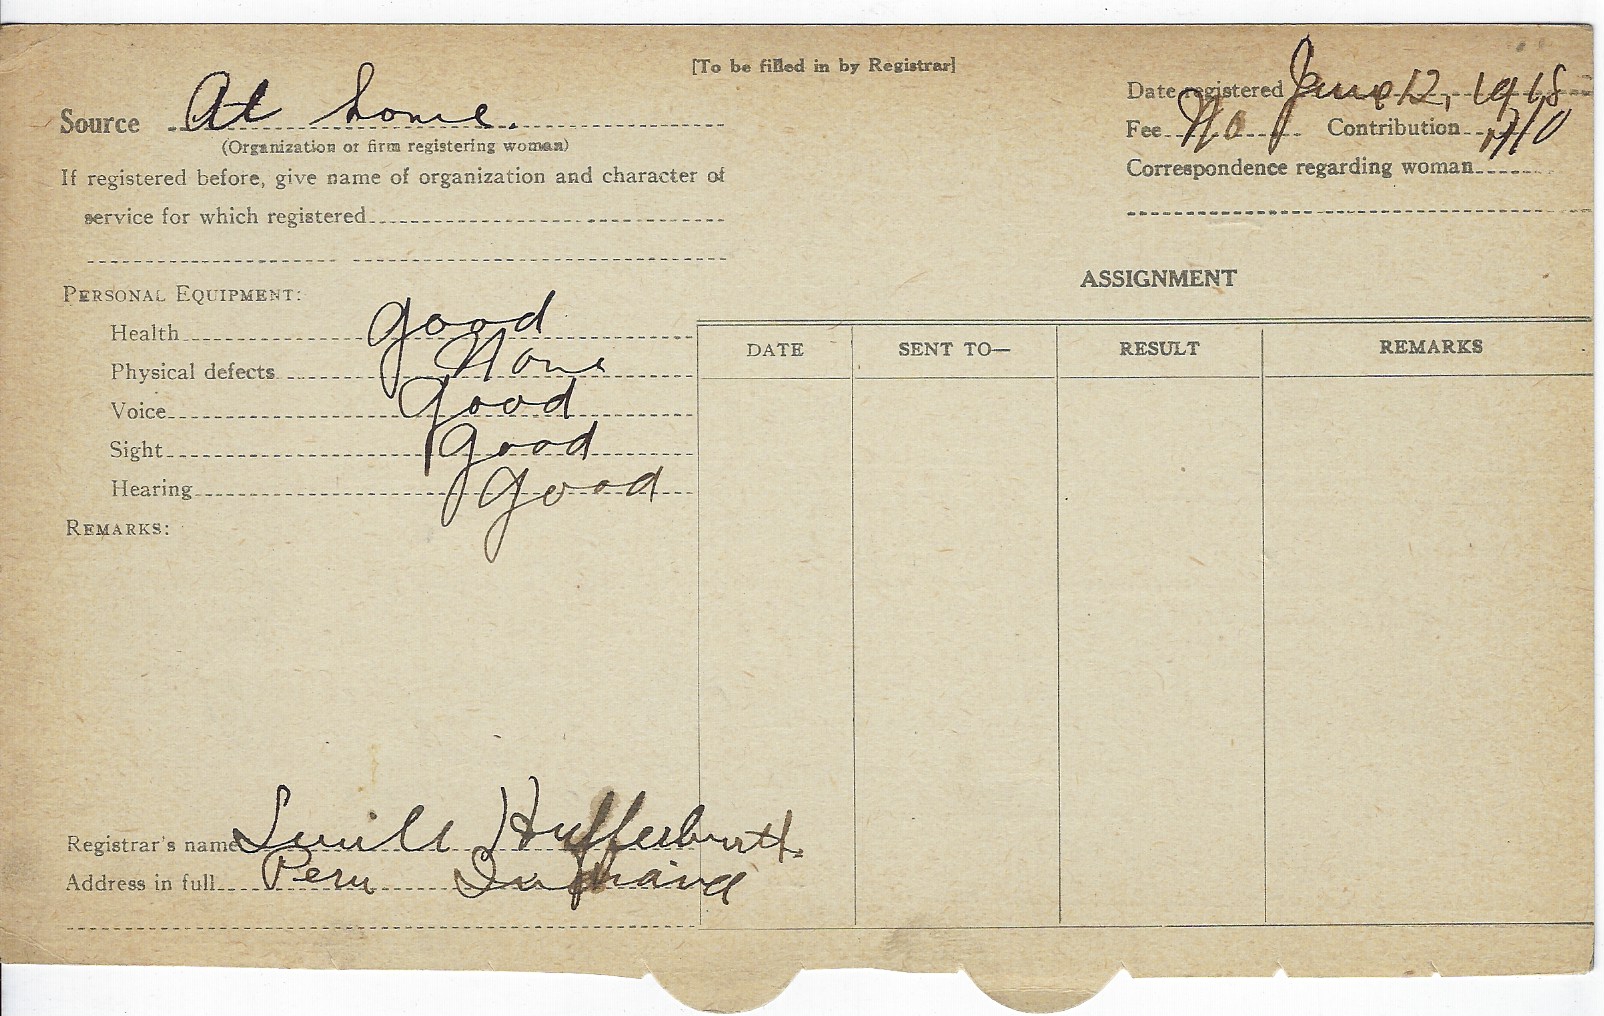 [To be filled in by Registrar]
Source At home.
(Organization or firm registering woman)
If registered before, give name of organization and character of
service for which registered
Date registered June 12, 1918
Fee No Contribution No
Correspondence regarding woman
PERSONAL EQUIPMENT:
Health good
Physical defects None
Voice good
Sight good
Hearing good
REMARKS:
ASSIGNMENT
DATE SENT TO— RESULT REMARKS
Registrar's name
Address in full Peru Indiana